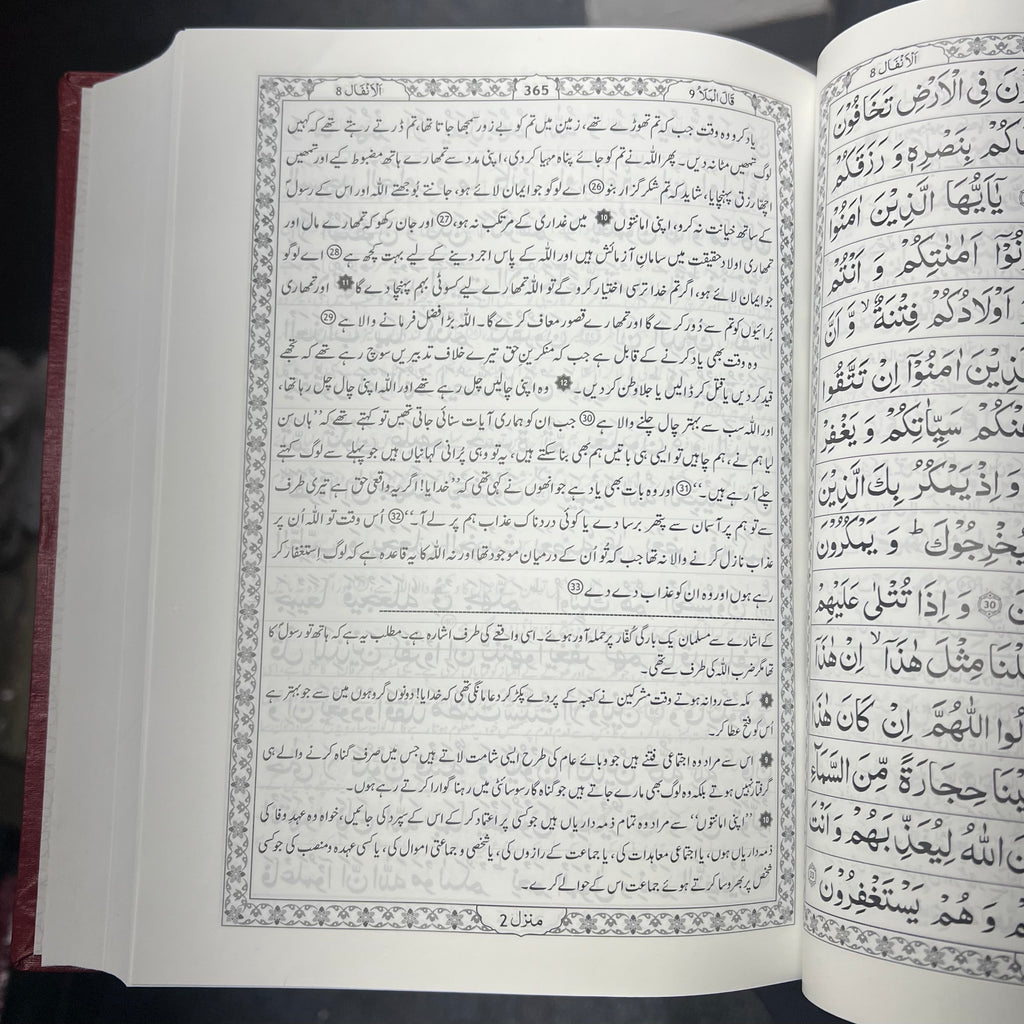 قَالَ الْمَلَاُ 9
365
اَلْاَنْفَال 8
یاد کرو وہ وقت جب کہ تم تھوڑے تھے، زمین میں تم کو بے زور سمجھا جاتا تھا، تم ڈرتے رہتے تھے کہ کہیں
لوگ تمھیں مٹا نہ دیں۔ پھر اللہ نے تم کو جائے پناہ مہیا کر دی، اپنی مدد سے تمھارے ہاتھ مضبوط کیے اور تمھیں
اچھا رزق پہنچایا، شاید کہ تم شکر گزار بنو 26 اے لوگو جو ایمان لائے ہو، جانتے بُوجھتے اللہ اور اس کے رسولؐ
کے ساتھ خیانت نہ کرو، اپنی امانتوں 10 میں غداری کے مرتکب نہ ہو، 27 اور جان رکھو کہ تمھارے مال اور
تمھاری اولاد حقیقت میں سامانِ آزمائش ہیں اور اللہ کے پاس اجر دینے کے لیے بہت کچھ ہے 28 اے لوگو
جو ایمان لائے ہو، اگر تم خدا ترسی اختیار کرو گے تو اللہ تمھارے لیے کسوٹی بہم پہنچا دے گا 11 اور تمھاری
بُرائیوں کو تم سے دُور کرے گا اور تمھارے قصور معاف کرے گا۔ اللہ بڑا فضل فرمانے والا ہے 29
وہ وقت بھی یاد کرنے کے قابل ہے جب کہ منکرینِ حق تیرے خلاف تدبیریں سوچ رہے تھے کہ تجھے
قید کر دیں یا قتل کر ڈالیں یا جلا وطن کر دیں۔ 12 وہ اپنی چالیں چل رہے تھے اور اللہ اپنی چال چل رہا تھا،
اور اللہ سب سے بہتر چال چلنے والا ہے 30 جب ان کو ہماری آیات سنائی جاتی تھیں تو کہتے تھے کہ ”ہاں سن
لیا ہم نے، ہم چاہیں تو ایسی ہی باتیں ہم بھی بنا سکتے ہیں، یہ تو وہی پُرانی کہانیاں ہیں جو پہلے سے لوگ کہتے
چلے آ رہے ہیں۔“ 31 اور وہ بات بھی یاد ہے جو انھوں نے کہی تھی کہ ”خدایا! اگر یہ واقعی حق ہے تیری طرف
سے تو ہم پر آسمان سے پتھر برسا دے یا کوئی دردناک عذاب ہم پر لے آ۔“ 32 اُس وقت تو اللہ اُن پر
عذاب نازل کرنے والا نہ تھا جب کہ تُو اُن کے درمیان موجود تھا اور نہ اللہ کا یہ قاعدہ ہے کہ لوگ اِستغفار کر
رہے ہوں اور وہ ان کو عذاب دے دے 33
کے اشارے سے مسلمان یک بارگی کُفّار پر حملہ آور ہوئے۔ اسی واقعے کی طرف اشارہ ہے۔ مطلب یہ ہے کہ ہاتھ تو رسولؐ کا
تھا مگر ضرب اللہ کی طرف سے تھی۔
مکہ سے روانہ ہوتے وقت مشرکین نے کعبہ کے پردے پکڑ کر دعا مانگی تھی کہ خدایا! دونوں گروہوں میں سے جو بہتر ہے
اُس کو فتح عطا کر۔
اس سے مراد وہ اجتماعی فتنے ہیں جو وبائے عام کی طرح ایسی شامت لاتے ہیں جس میں صرف گناہ کرنے والے ہی
گرفتار نہیں ہوتے بلکہ وہ لوگ بھی مارے جاتے ہیں جو گناہ گار سوسائٹی میں رہنا گوارا کرتے رہے ہوں۔
10 ”اپنی امانتوں“ سے مراد وہ تمام ذمہ داریاں ہیں جو کسی پر اعتماد کر کے اس کے سپرد کی جائیں، خواہ وہ عہدِ وفا کی
ذمہ داریاں ہوں، یا اجتماعی معاہدات کی، یا جماعت کے رازوں کی، یا شخصی و جماعتی اموال کی، یا کسی عہدہ و منصب کی جو کسی
شخص پر بھروسا کرتے ہوئے جماعت اس کے حوالے کرے۔
منزل 2
اَلْاَنْفَال 8
فِى الْاَرْضِ تَخَافُوْنَ
بِنَصْرِهٖ وَ رَزَقَكُمْ
يٰۤاَيُّهَا الَّذِيْنَ اٰمَنُوْا
اَمٰنٰتِكُمْ وَ اَنْتُمْ
اَوْلَادُكُمْ فِتْنَةٌ ۙ وَّ اَنَّ
اٰمَنُوْۤا اِنْ تَتَّقُوا
سَيِّاٰتِكُمْ وَ يَغْفِرْ
وَ اِذْ يَمْكُرُ بِكَ الَّذِيْنَ
يُخْرِجُوْكَ ؕ وَ يَمْكُرُوْنَ
30 وَ اِذَا تُتْلٰى عَلَيْهِمْ
مِثْلَ هٰذَاۤ ۙ اِنْ هٰذَاۤ
اللّٰهُمَّ اِنْ كَانَ هٰذَا
حِجَارَةً مِّنَ السَّمَآءِ
اللّٰهُ لِيُعَذِّبَهُمْ وَ اَنْتَ
وَ هُمْ يَسْتَغْفِرُوْنَ